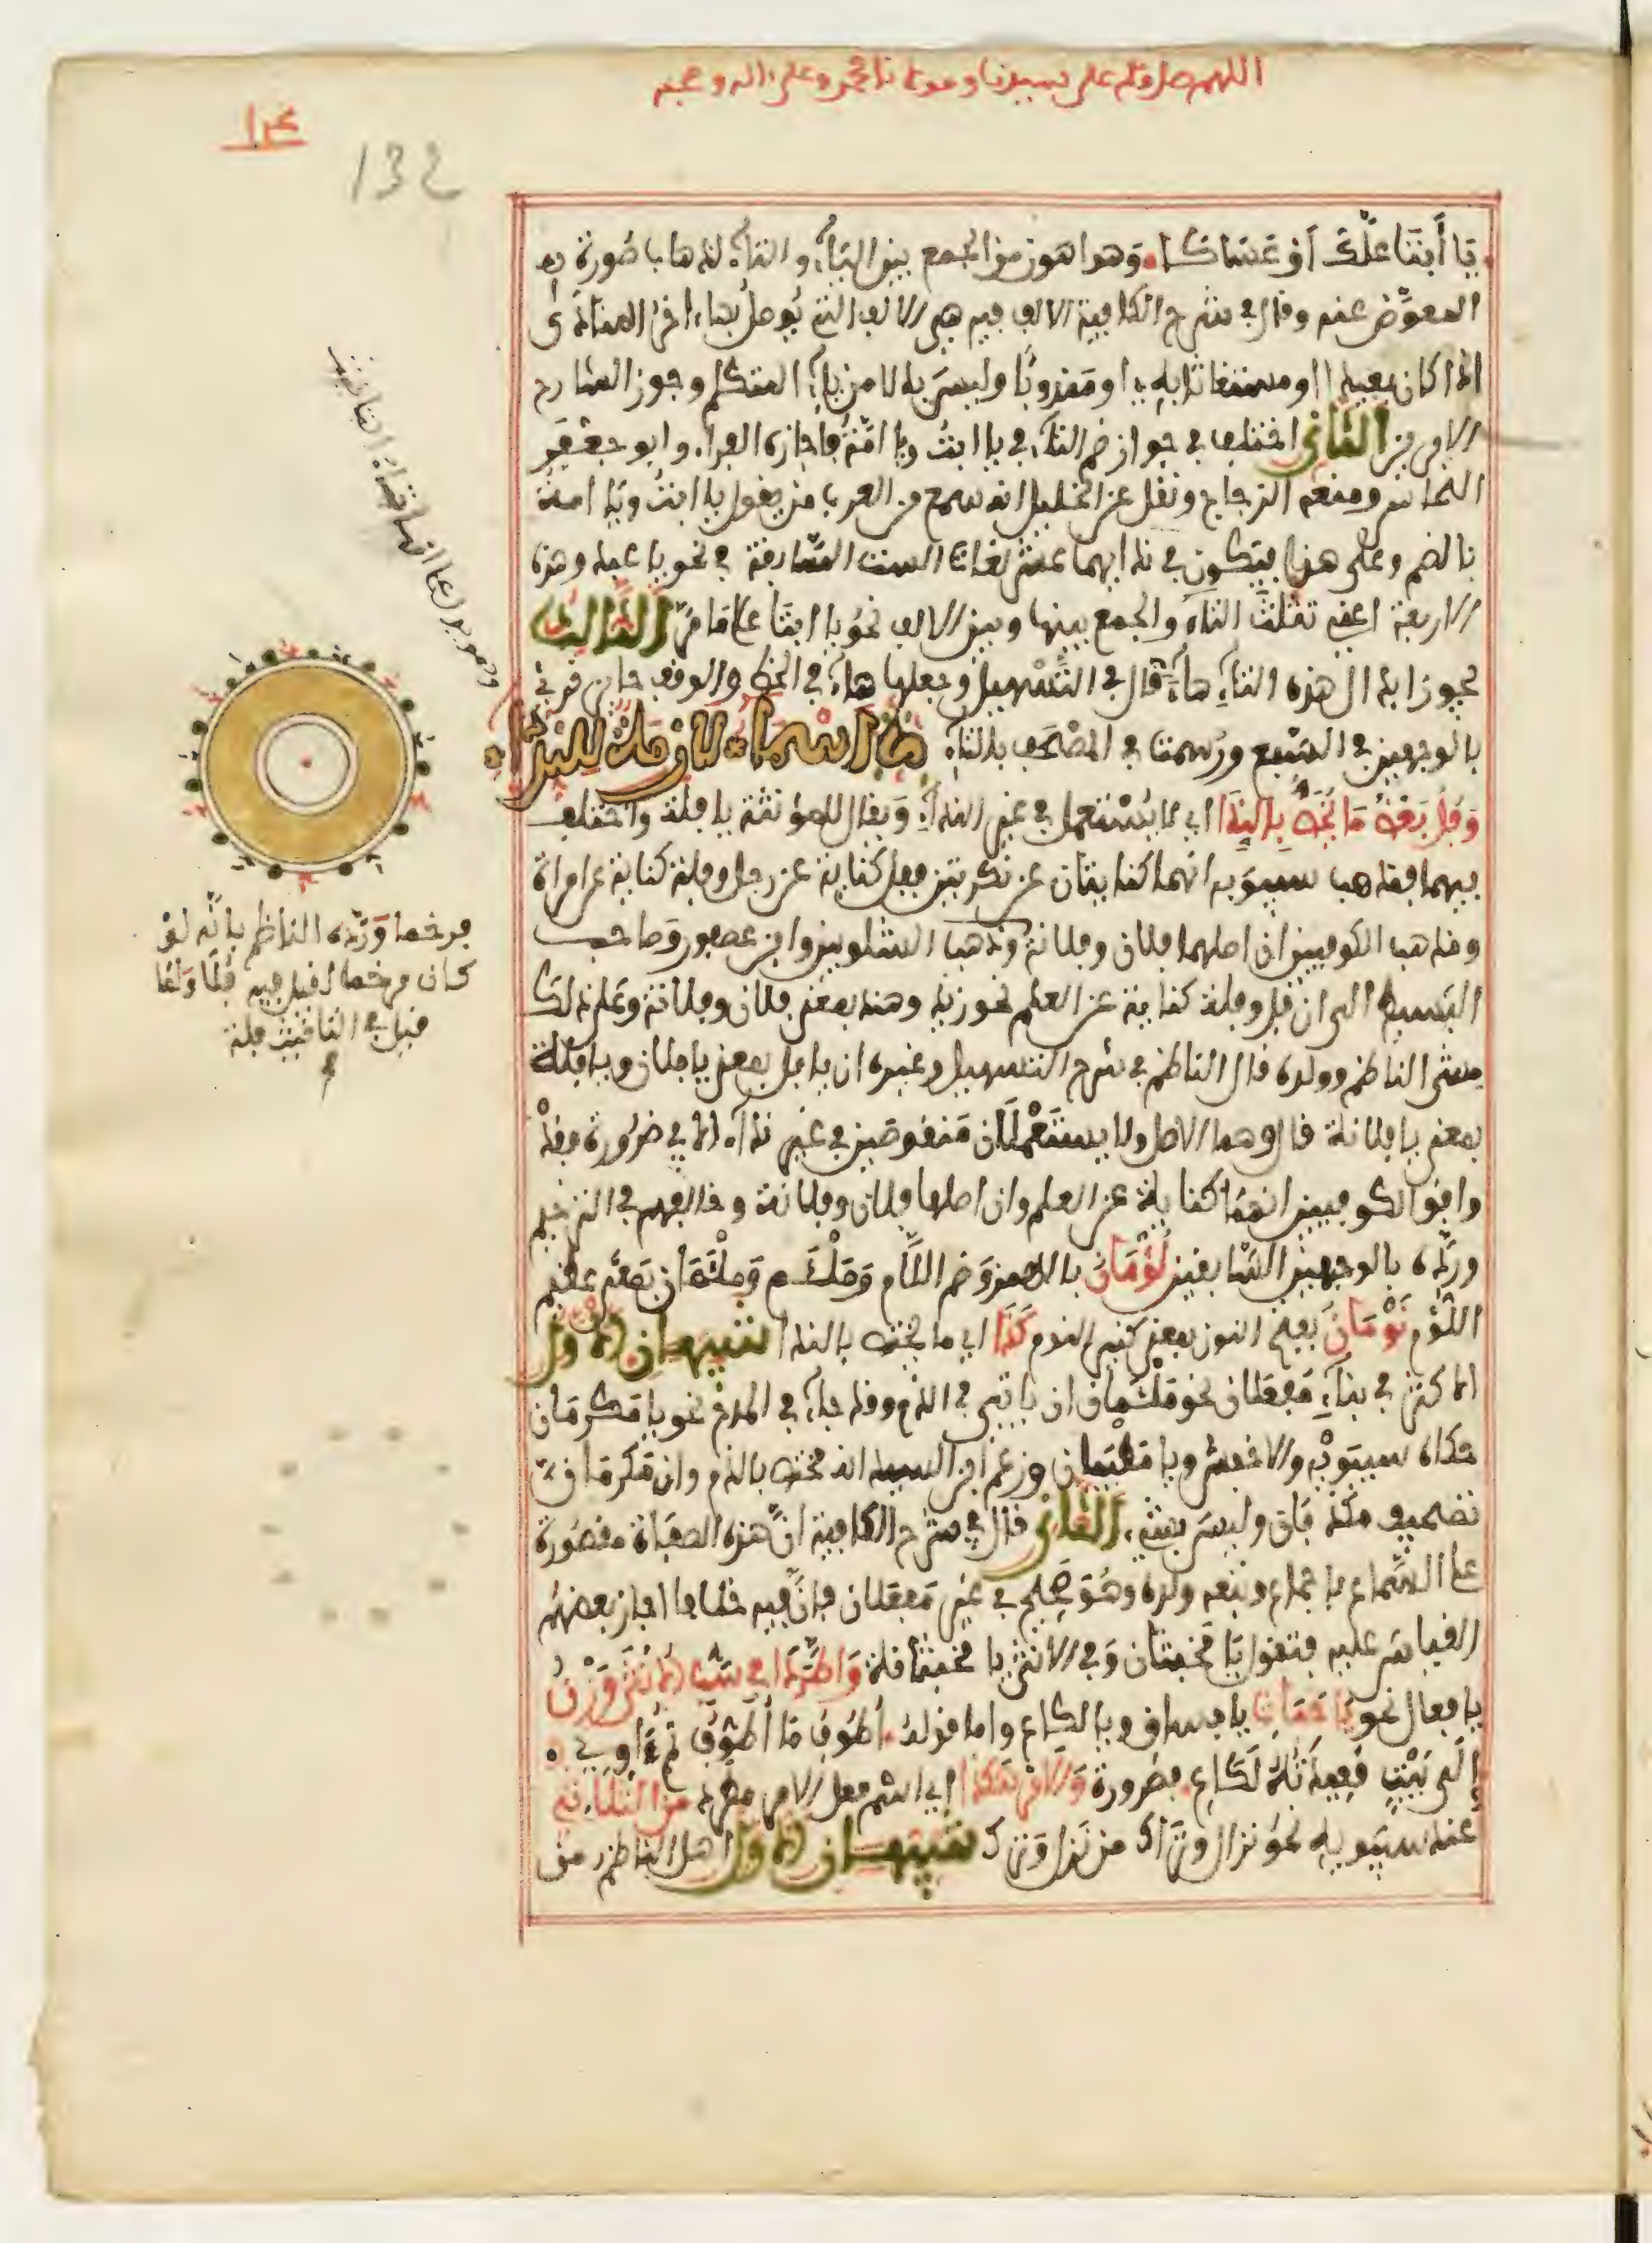 اللهم صل وسلم على سيدنا ومولانا محمد وعلى اله وصحبه
132
يَا أَبَتَا عَلَّكَ أَوْ عَسَاكَا وَهو اهون من الجمع بين التاء والياء لذهاب صُورة
المعوَّض عنه وقال في شرح الكافية الالف فيه هي الالف التي يُوصل بها اخر المنادى
اذا كان بعيدا او مستغاثا به او مَندوبًا وليسَ بدلا من ياء المتكلم وجوز الشارح
الامرين الثاني اختلف في جواز ضم التاء في يا ابتُ ويا امّتُ فاجازه الفراء وابو جعفَر
النحاس ومنعه الزجاج ونقل عن الخليل انه سمع من العرب من يقول يا ابتُ ويَا امتُ
بالضم وعلى هذا فيكون في ندائهما عشر لغات الست السَّابقة في نحو يا عبد وهذه
الاربعة اعني تثليث التاء والجمع بينها وبين الالف نحوُ يا ابتَا على مَا مَرّ الثالث
يجوز ابدال هذه التاء هاء قال في التَّسْهيل وجعلها هاء في الخط والوقف جايز قرئ
بالوجهين في السَّبع ورُسمت في المصْحَف بالتاء اسماء لازمت النداء
وَفُلُ بَعْضُ مَا يُخَصُّ بِالنِّدَا اي لا يُسْتعمل في غير النداء وَيقال للمؤنثة يا فلة واختلف
فيهما فمذهب سيبَويه انهما كنايتان عن نكرتين ففل كناية عن رجل وفلة كناية عن امراة
ومذهب الكوفيين ان اصلهما فلان وفلانة وَذهب الشلوبين وابن عصفور وَصاحب
البَسيط الى ان فل وفلة كناية عن العلم نحو زيد وهند بمعنى فلان وفلانة وعلى ذلك
مشى الناظم وولده قال الناظم في شرح التسهيل وغيره ان يا فل بمعنى يا فلان ويا فلة
بمعنى يا فلانة قال وهما الاصل ولا يستَعْملَان مَنقوصَين في غير نداء الا في ضرُورة فقدْ
وافق الكوفيين انهمَا كناية عن العلم وان اصلها فلان وفلانة وخالفهم في الترخيم
وردّه بالوجهين السَّابقين لُؤْمَانُ بالهمز وَضم اللَّام وَمَلْأَم وَمَلْأَمَان بمَعنى عظيم
اللُّؤم نَوْمَانُ بفتح النون بمعنى كثير النوم كَذَا اي ما يختص بالندا تنبيهان الاول
الاكثر في بناء مَفعَلان نحو مَلْأَمَان ان ياتي في الذم وقد جاء في المدح نحو يا مَكرمَان
حكاه سيبَوَيْه والاخفش ويا مَطْيَبَان وزعم ابن السيد انه مختص بالذم وان مَكرمَان
تصحيف مَكْذبَان وليسَ بشيء الثاني قال في شرح الكافية انّ هذه الصفات مقصُورة
على السَّمَاع باجماع وتبعه ولده وهُوَ صَحيح في غير مَفعَلان فانّ فيه خلافا اجاز بعضهُم
القياسَ عليه فتقول يَا مَخبَثان وَفي الانثى يا مَخبَثَانة وَاطَّرَدَا في سَبِّ الاُنْثَى وَزْنُ
يا فعال نحو يَا خَبَاثِ يا فساق ويا لكاع واما قولهُ اُطَوّفُ مَا أُطَوِّفُ ثُمَّ ءَاوِي
إِلَى بَيْتٍ قَعِيدَتُهُ لَكَاعِ فضرورة وَالاَمْرُ هَكَذَا اي اسْم فعل الامر مطَّرد مِنَ الثُّلَاثِي
عند سيبَويه نحوُ نزال وتَرَاك من نزَل وَترَك تنبيهان الاول اهمل الناظم من
مرخما وَرَدّه الناظم بانَّه لوْ
كان مرخما لقيل فيه فُلَا وَلمَا
قيل في التانيث فلة